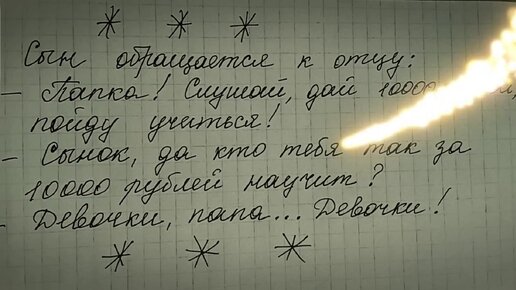 * * *
Сын обращается к отцу:
- Папка! Слушай, дай 10000
пойду учиться!
- Сынок, да кто тебя так за
10000 рублей научит?
- Девочки, папа... Девочки!
* * *